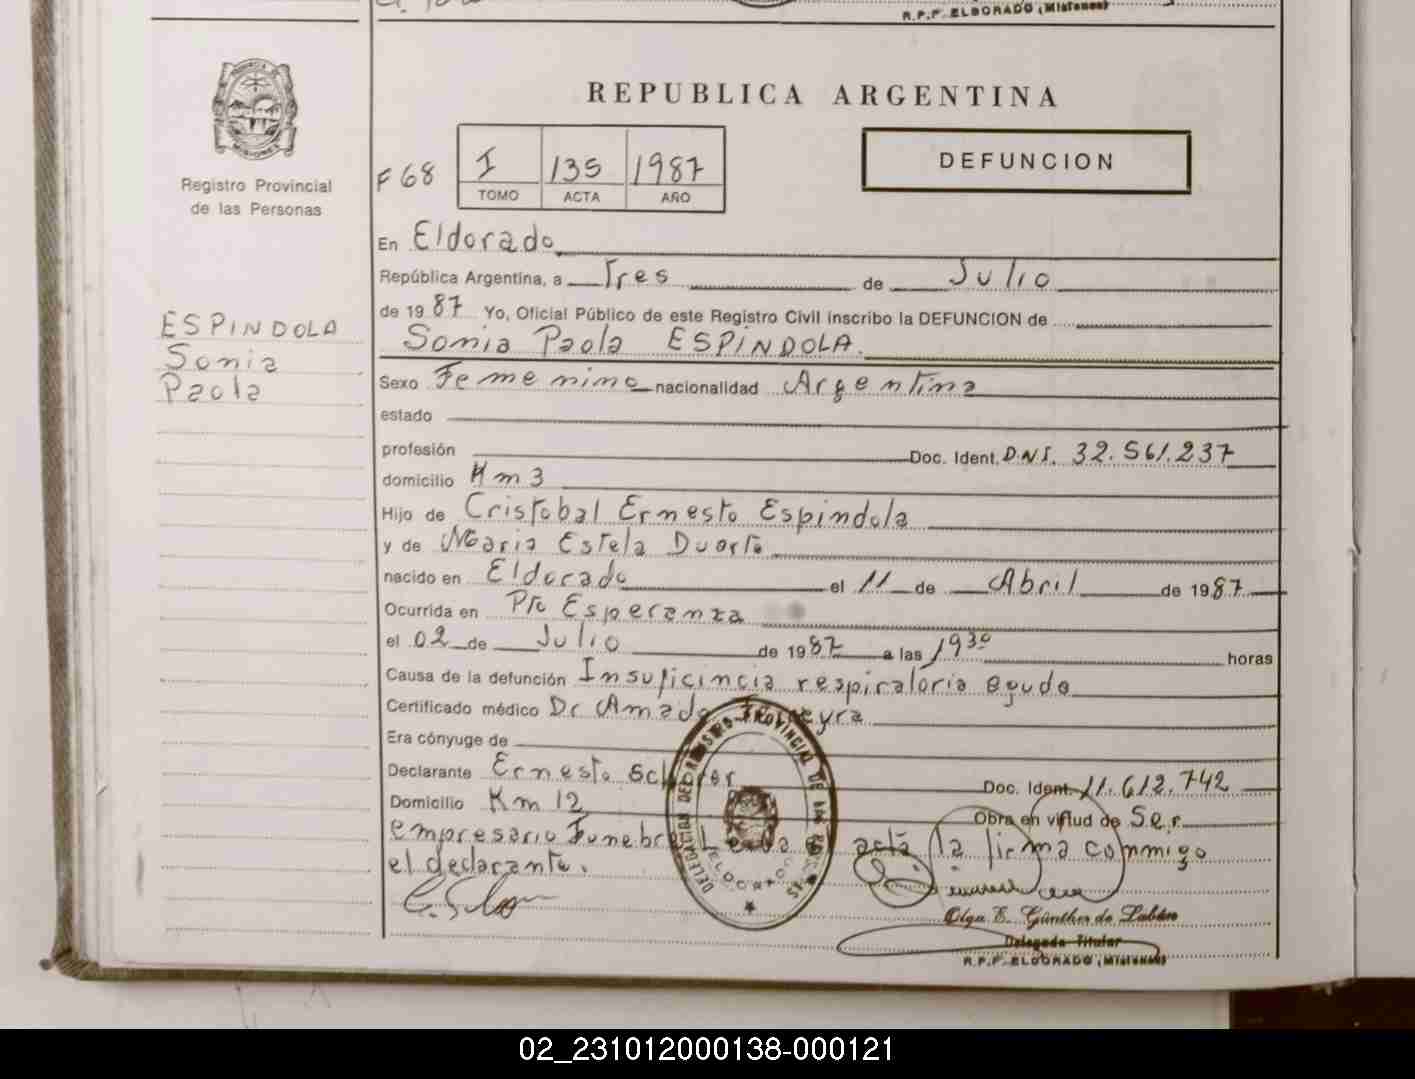 R.P.P. ELDORADO (Misiones)
PROVINCIA DE
MISIONES
REPUBLICA ARGENTINA
Registro Provincial
de las Personas
F 68
I 135 1987
TOMO ACTA AÑO
DEFUNCION
En Eldorado
República Argentina, a Tres de Julio
de 1987 Yo, Oficial Público de este Registro Civil inscribo la DEFUNCION de
Sonia Paola ESPINDOLA.
ESPINDOLA
Sonia
Paola
Sexo Femenino nacionalidad Argentina
estado
profesión Doc. Ident. D.N.I. 32.561.237
domicilio Km 3
Hijo de Cristobal Ernesto Espindola
y de Maria Estela Duarte
nacido en Eldorado el 11 de Abril de 1987
Ocurrida en Pto Esperanza
el 02 de Julio de 1987 a las 19³⁰ horas
Causa de la defunción Insuficincia respiratoria aguda
Certificado médico Dr Amado
Era cónyuge de
Declarante Ernesto
Doc. Ident. 11.612.742
Domicilio Km 12
Obra en virtud de Ser
empresario Funebre Leida el acta la firma conmigo
el declarante.
DELEGACION DEL REGISTRO PROVINCIAL DE LAS PERSONAS
ELDORADO
Olga E. Günther de Labán
Delegada Titular
R.P.P. ELDORADO (Misiones)
02_231012000138-000121